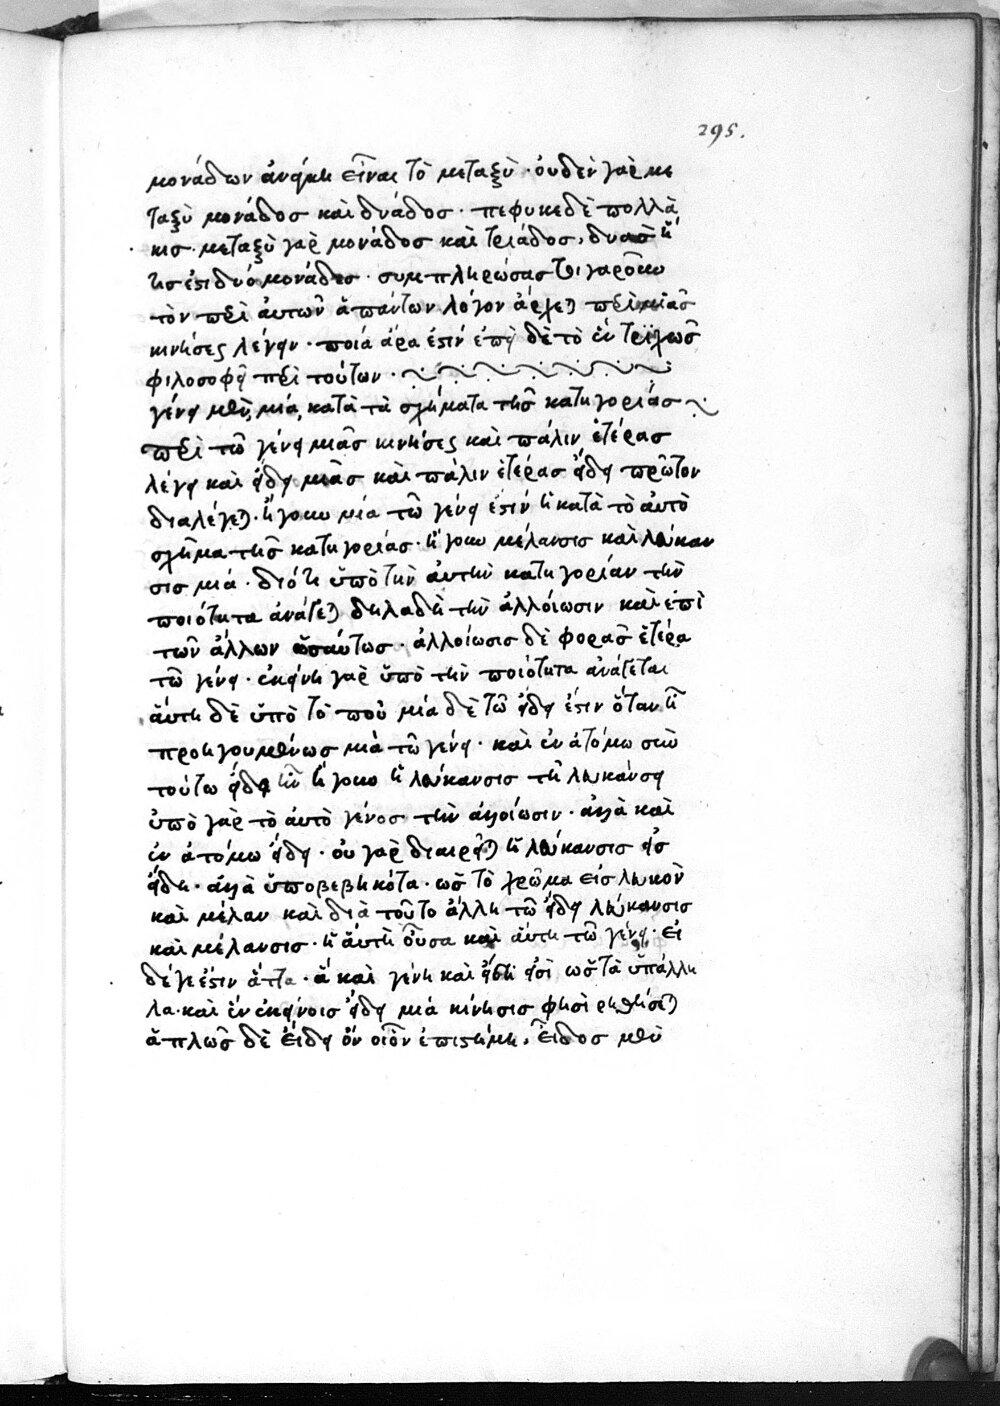 295.
μονάδων ἀνάγκη εἶναι τὸ μεταξὺ · οὐδὲν γὰρ με
ταξὺ μονάδος καὶ δυάδος · πέφυκε δὲ πολλά
κις · μεταξὺ γὰρ μονάδος καὶ τριάδος, δυὰς ἤ
τις ἐστὶ δύο μονάδες · συμπληρώσας τοιγαροῦν
τὸν περὶ αὐτῶν ἁπάντων λόγον ἄρχεται περὶ μιᾶς
κινήσεως λέγειν · ποία ἄρα ἐστίν ἐπεὶ δὲ τὸ ἓν τριχῶς
φιλοσοφεῖ περὶ τούτων ·
γένει μὲν, μία, κατὰ τὰ σχήματα τῆς κατηγορίας
περὶ τῶ γένει μιᾶς κινήσεως καὶ πάλιν ἑτέρας
λέγει καὶ εἴδει μιᾶς καὶ πάλιν ἑτέρας εἴδει πρῶτον
διαλέγεται · ἤγουν μία τῶ γένει ἐστίν ἡ κατὰ τὸ αὐτὸ
σχῆμα τῆς κατηγορίας · ἤγουν μέλανσις καὶ λεύκαν
σις μιά · διότι ὑπὸ τὴν αὐτὴν κατηγορίαν τὴν
ποιότητα ἀνάγεται δηλαδὴ τὴν ἀλλοίωσιν καὶ ἐπὶ
τῶν ἄλλων ὡσαύτως · ἀλλοίωσις δὲ φορᾶς ἑτέρα
τῶ γένει · ἐκείνη γὰρ ὑπὸ τὴν ποιότητα ἀνάγεται
αὕτη δὲ ὑπὸ τὸ ποῦ μία δὲ τῶ εἴδει ἐστιν ὅταν ἦ
προηγουμένως μιὰ τῶ γένει · καὶ ἐν ἀτόμω σὺν
τούτω εἴδει ἦν ἤγουν ἡ λεύκανσις τῆ λευκάνσει
ὑπὸ γὰρ τὸ αὐτὸ γένος τὴν ἀλλοίωσιν · ἀλλὰ καὶ
ἐν ἀτόμω εἴδει · οὐ γὰρ διαιρεῖται ἡ λεύκανσις εἰς
εἴδη · ἀλλὰ ὑποβεβηκότα · ὡς τὸ χρῶμα εἰς λευκὸν
καὶ μέλαν καὶ διὰ τοῦτο ἄλλη τῶ εἴδει λεύκανσις
καὶ μέλανσις · ἡ αὐτὴ οὖσα καὶ αὕτη τῶ γένει · εἰ
δέ γε ἐστιν ἄττα · ἃ καὶ γένη καὶ εἴδη εἰσὶ ὡς τὰ ὑπάλλη
λα · καὶ ἐν ἐκείνοις εἴδει μιά κίνησις φησὶ ῥηθήσεται
ἁπλῶς δὲ εἴδει ὂν οἷον ἐπιστήμη, εἶδος μὲν